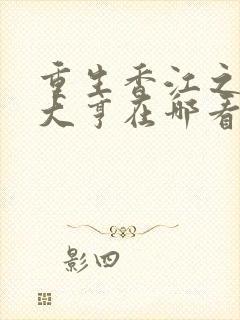 重生香江之
大亨在哪看
影四